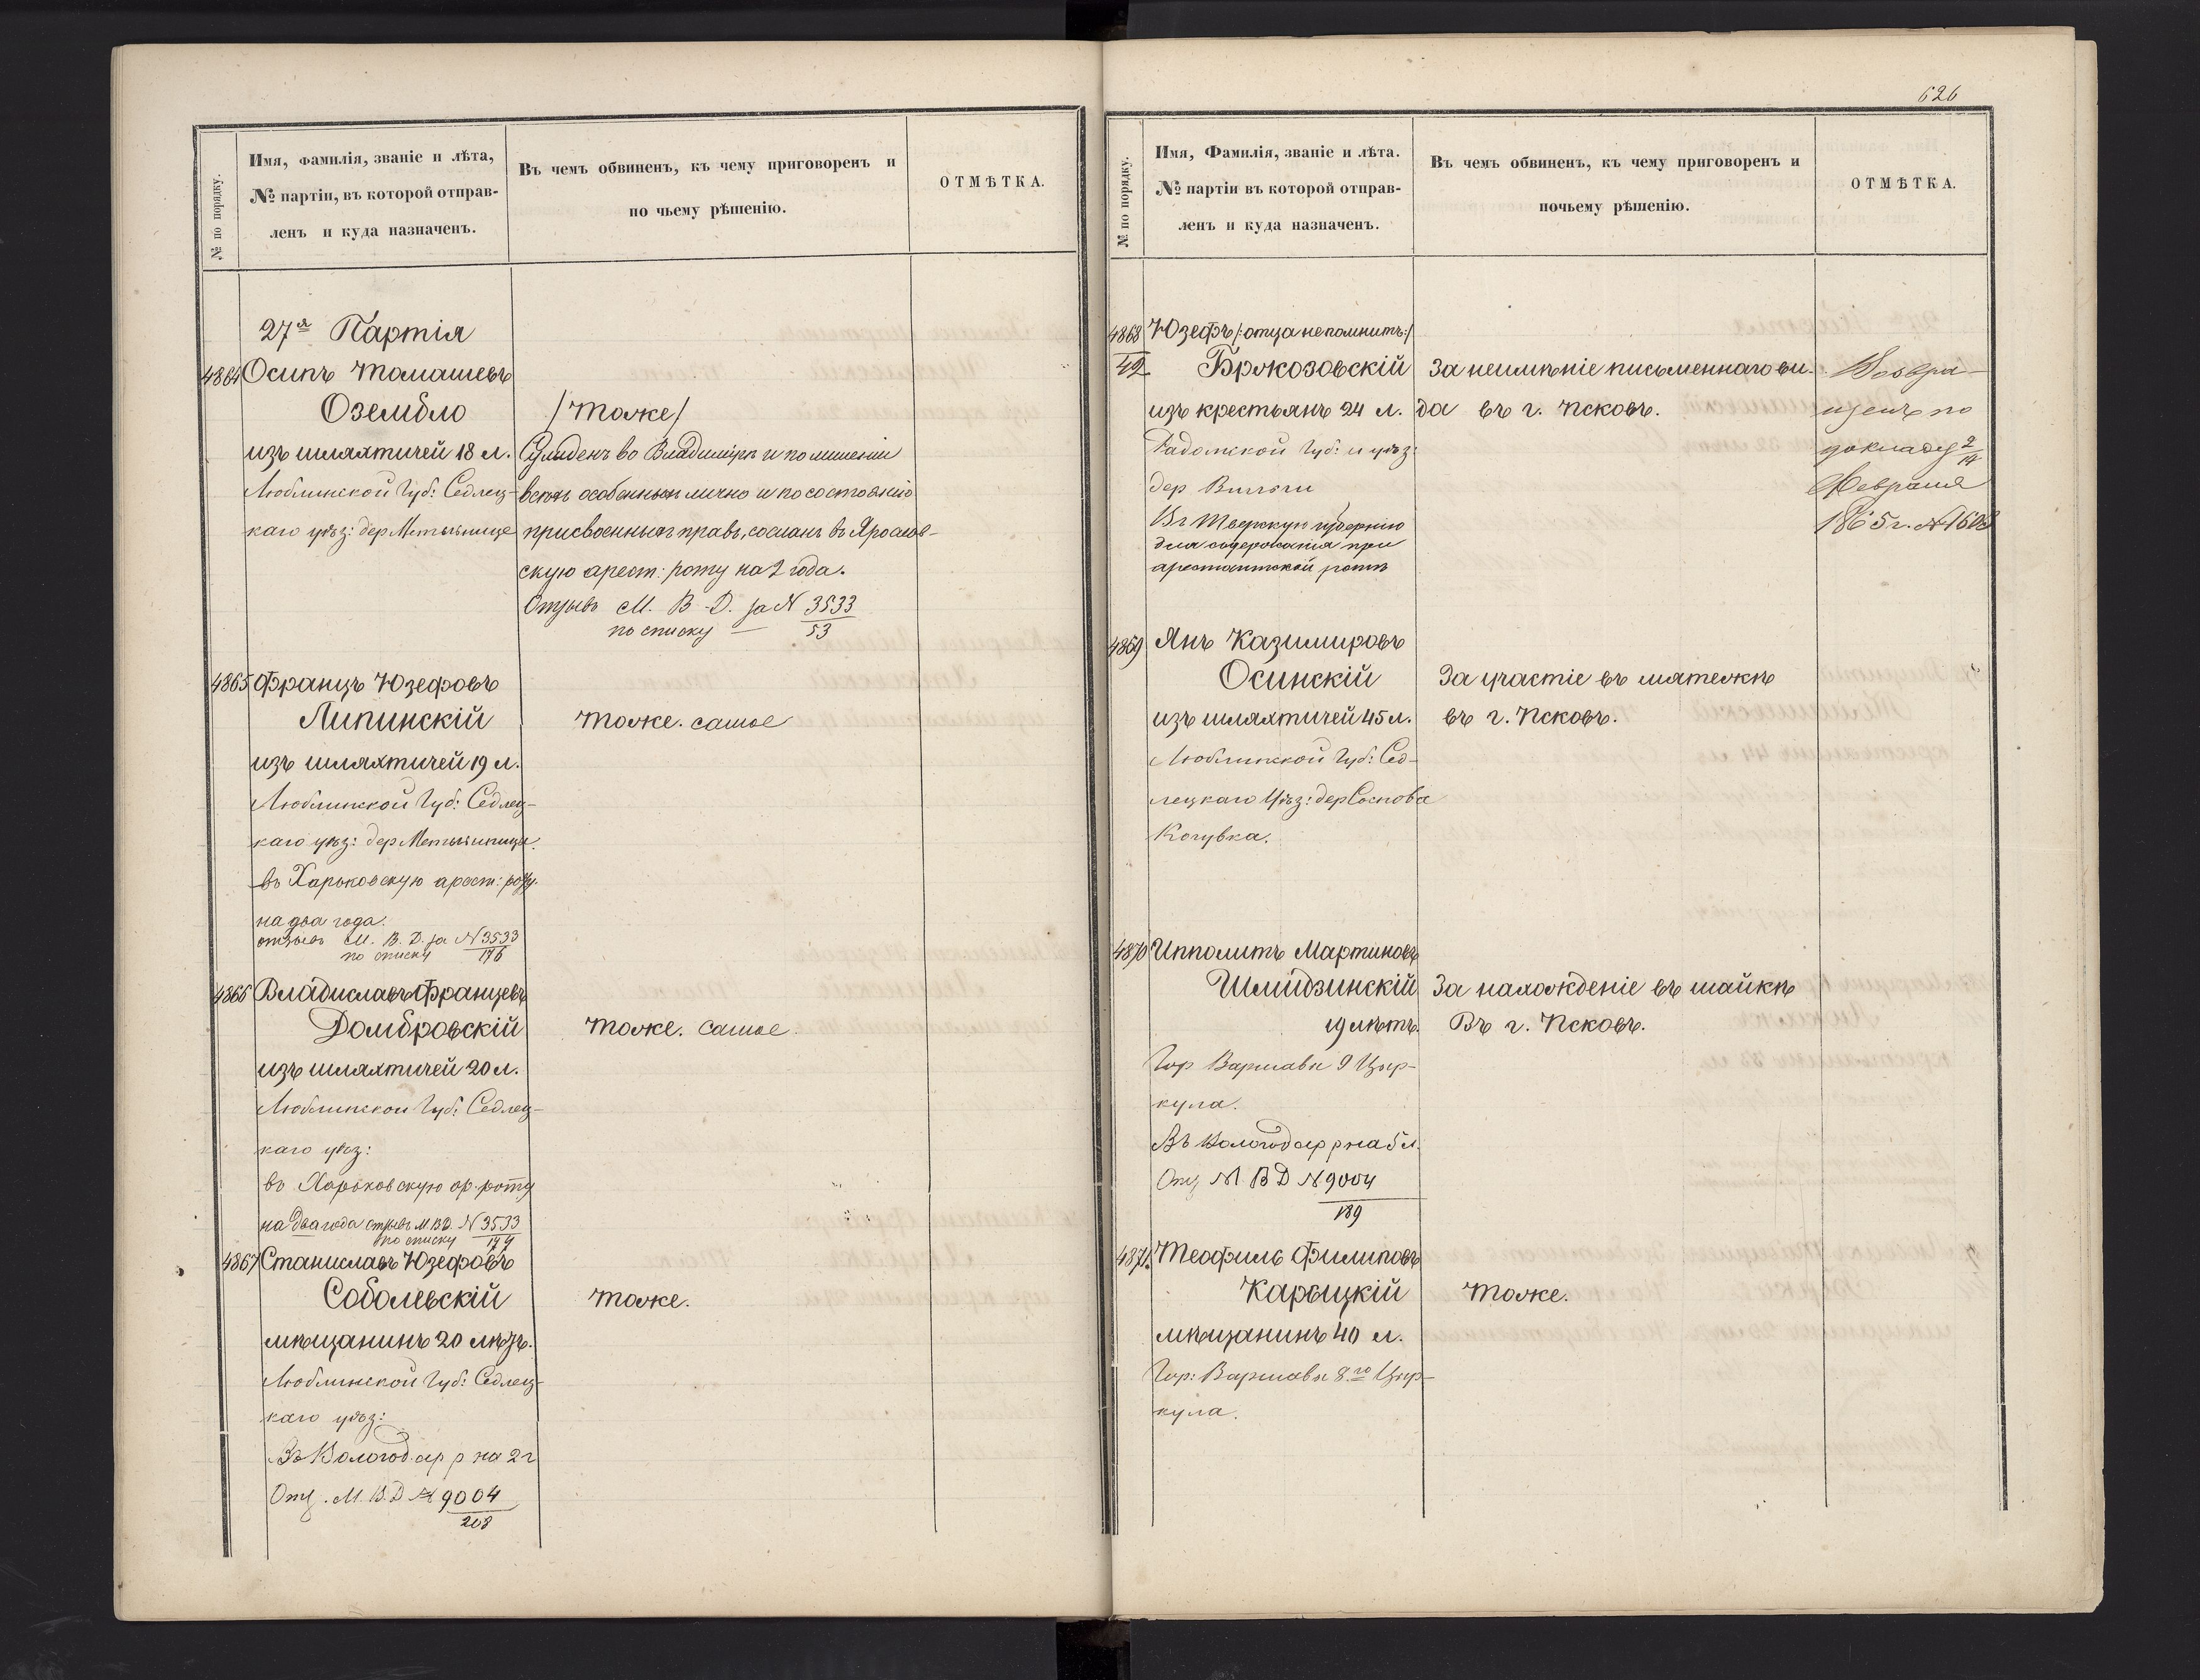 № по порядку.
Имя, фамилія, званіе и лѣта,
№ партіи, въ которой отправ-
ленъ и куда назначенъ.
Въ чемъ обвиненъ, къ чему приговоренъ и
по чьему рѣшенію.
ОТМѢТКА.
27я Партія
4864 Осипъ Томашевъ
Озембло
из шляхтичей 18 л.
Люблинской Губ: Седлец-
каго уѣз: дер
/тоже/
Сужденъ во Владимірѣ и по лишеніи
всѣхъ особенныхъ лично и по состоянію
присвоенныхъ правъ, сосланъ въ Ярослов-
скую арест: роту на 2 года.
Отзывъ М. В. Д. за N 3533
по списку — 53
4865 Францъ Юзефовъ
Липинскій
изъ шляхтичей 19 л.
Люблинской Губ: Седлец-
каго уѣз: дер
въ Харьковскую арест: роту.
на два года.
отзывъ М. В. Д. за N 3533
по списку 176
тоже. самое
4866 Владиславъ Францевъ
Домбровскій
изъ шляхтичей 20 л.
Люблинской Губ: Седлец-
каго уѣз:
въ Харьковскую ар. роту
на два года отзывъ М В Д. N 3533
по списку
тоже. самое.
4867 Станиславъ Юзефовъ
Соболевскій
мѣщанинъ 20 лѣтъ.
Люблинской Губ: Седлец-
каго уѣз:
Въ Вологод. ар р на 2 г
Отз. М. В. Д № 9004
208
тоже.
626
№ по порядку.
Имя, Фамилія, званіе и лѣта.
№ партіи въ которой отправ-
ленъ и куда назначенъ.
Въ чемъ обвиненъ, къ чему приговоренъ и
почьему рѣшенію.
ОТМѢТКА.
4868 Юзефъ /:отца не помнитъ:/
42 Бржозовскій
изъ крестьянъ 24 л.
Радомской Губ: и уѣз:
дер
Въ Тверскую губернію
для содержанія при
арестантской ротѣ
За неимѣніе письменнаго ви-
да въ г. Псковъ.
Возвра-
щенъ по
докладу 2/14
Февраля
1865 г. №
4869 Янъ Казимировъ
Осинскій
изъ шляхтичей 45 л.
Люблинской Губ: Сед-
лецкаго Уѣз: дер Соснова
За участіе въ мятежѣ
въ г. Псковъ.
4870 Ипполитъ Мартиновъ
Шмидзинскій
19 лѣтъ.
Гор Варшавы 9 Цыр-
кула.
Въ Вологод ар р на 5 л.
Отз М В Д № 9004
189
За нахожденіе въ шайкѣ
Въ г. Псковъ.
4871. Теофиль Филиповъ
Карвицкій
мѣщанинъ 40 л.
Гор: Варшавы 8.го Цыр-
кула.
тоже.